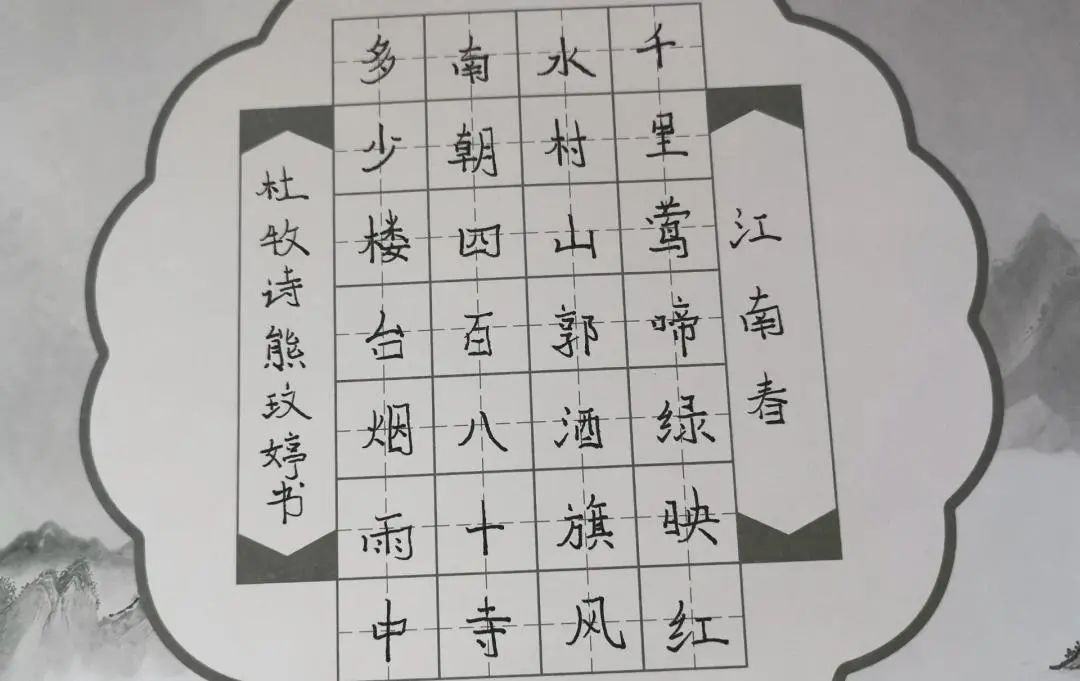 江南春
千里莺啼绿映红
水村山郭酒旗风
南朝四百八十寺
多少楼台烟雨中
杜牧诗熊玟婷书